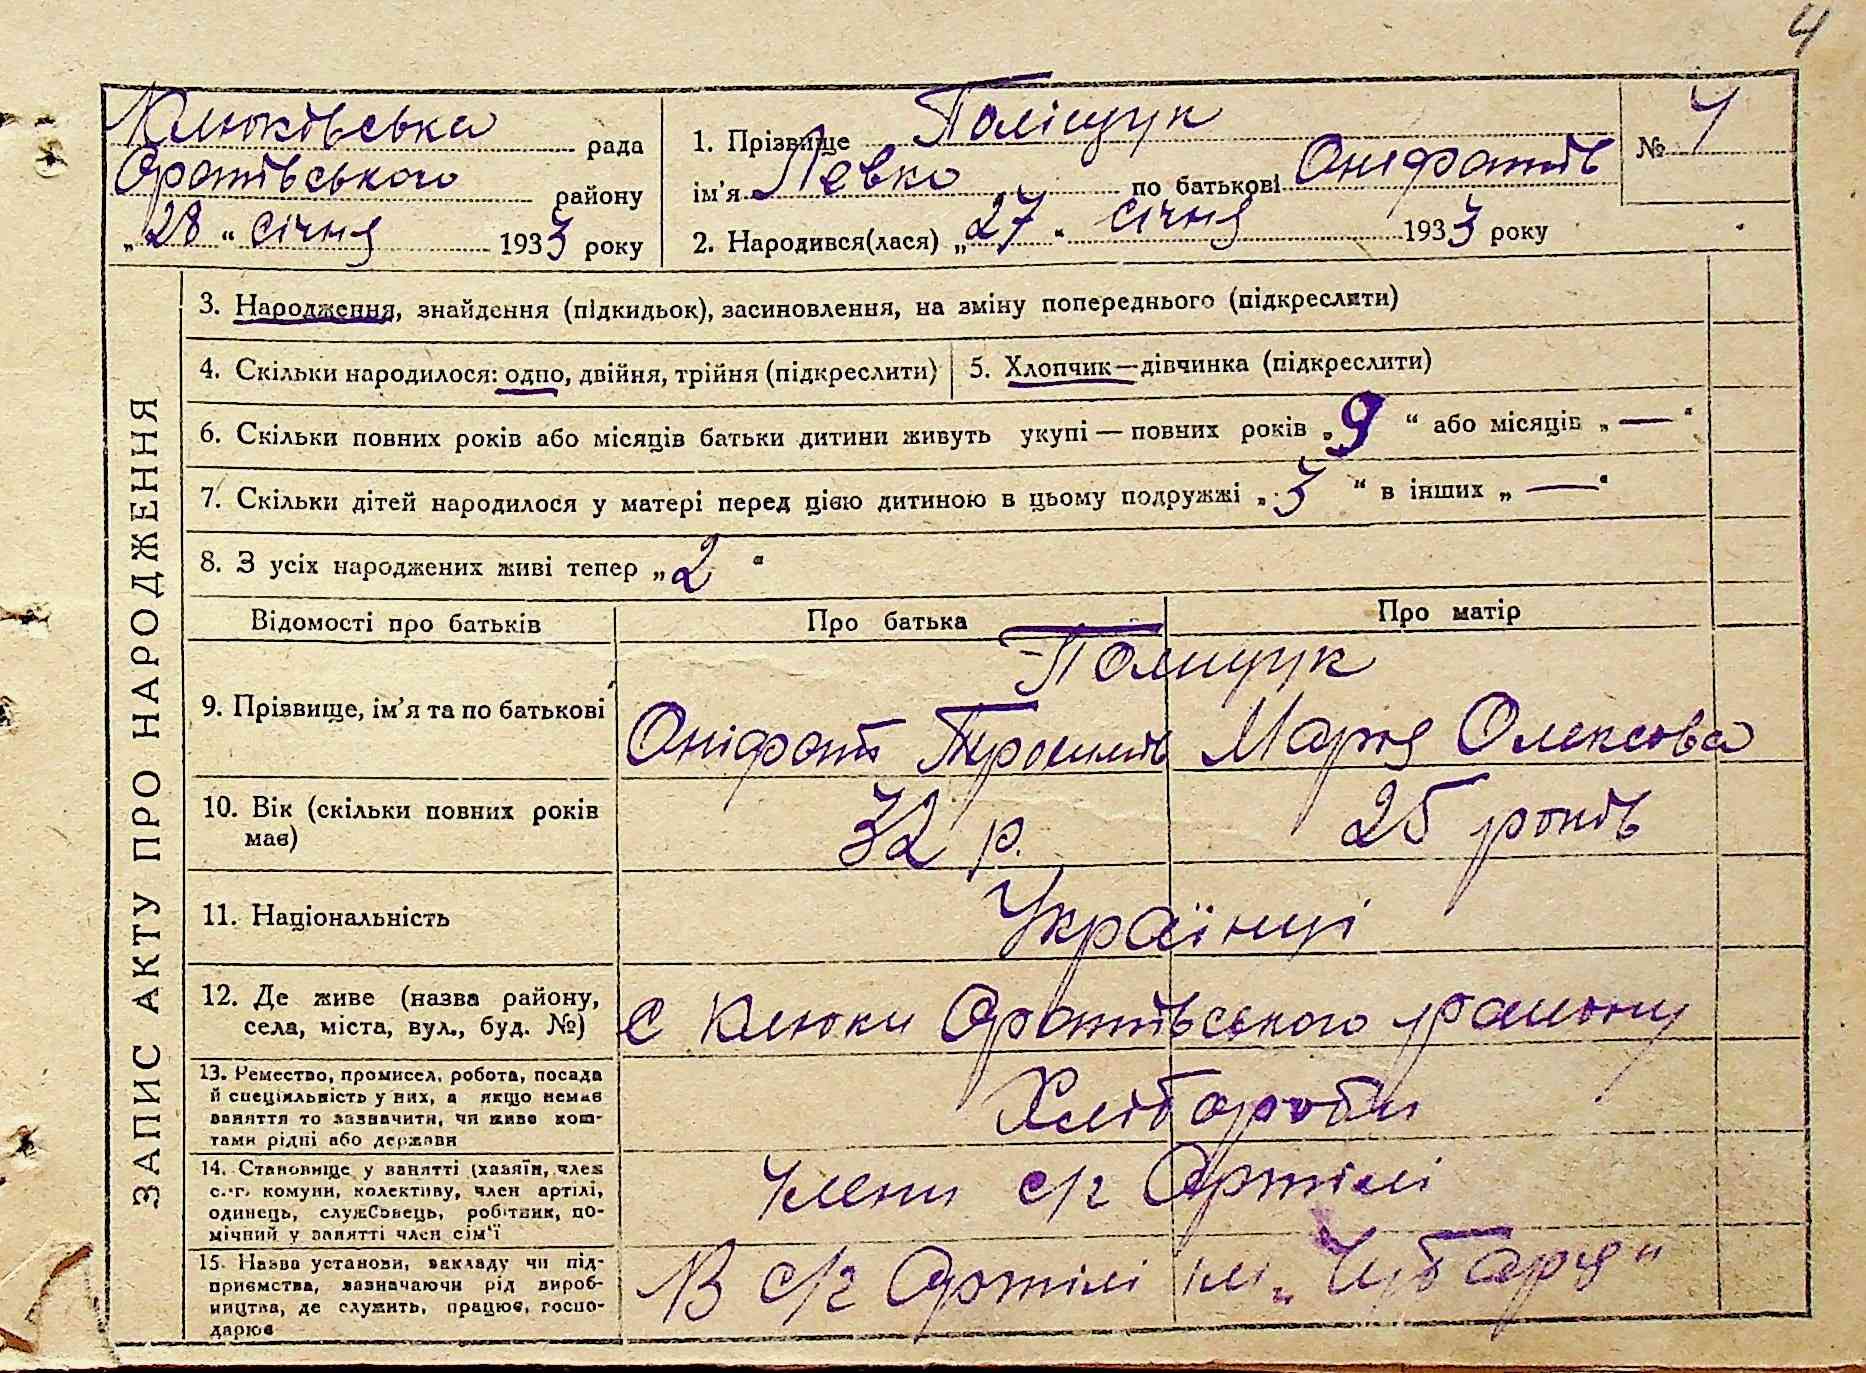 4
Клюківська рада
Оратівського району
„28“ січня 1933 року
1. Прізвище Поліщук
ім'я Левко по батькові Оніфатів
2. Народився(лася) „27“ січня 1933 року
№ 4
ЗАПИС АКТУ ПРО НАРОДЖЕННЯ
3. Народження, знайдення (підкидьок), засиновлення, на зміну попереднього (підкреслити)
4. Скільки народилося: одно, двійня, трійня (підкреслити)
5. Хлопчик—дівчинка (підкреслити)
6. Скільки повних років або місяців батьки дитини живуть укупі — повних років „9“ або місяців „—“
7. Скільки дітей народилося у матері перед цією дитиною в цьому подружжі „3“ в інших „—“
8. З усіх народжених живі тепер „2“
Відомості про батьків Про батька Про матір
Поліщук
9. Прізвище, ім'я та по батькові Оніфат Марія Олексова
10. Вік (скільки повних років має) 32 р. 25 років
11. Національність Українці
12. Де живе (назва району,
села, міста, вул., буд. №) с Клюки Оратівського району
13. Ремество, промисел, робота, посада
й спеціяльність у них, а якщо немає
заняття то зазначити, чи живе кош-
тами рідні або держави
Хлібороби
14. Становище у занятті (хазяїн, член
с.-г. комуни, колективу, член артілі,
одинець, службовець, робітник, по-
мічний у занятті член сім'ї
Члени с/г Артілі
15. Назва установи, закладу чи під-
приємства, зазначаючи рід вироб-
ництва, де служить, працює, госпо-
дарює
В с/г Артілі ім. „Чубаря“